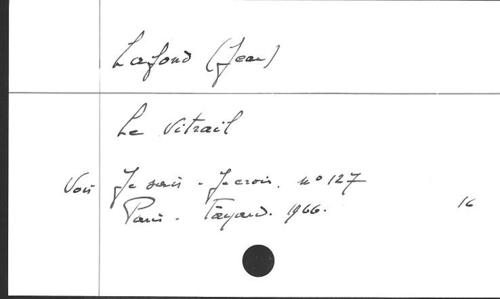 Lafond (Jean)
Le Vitrail
Voir Je sais - Je crois. n° 127
Paris - Fayard. 1966.
16